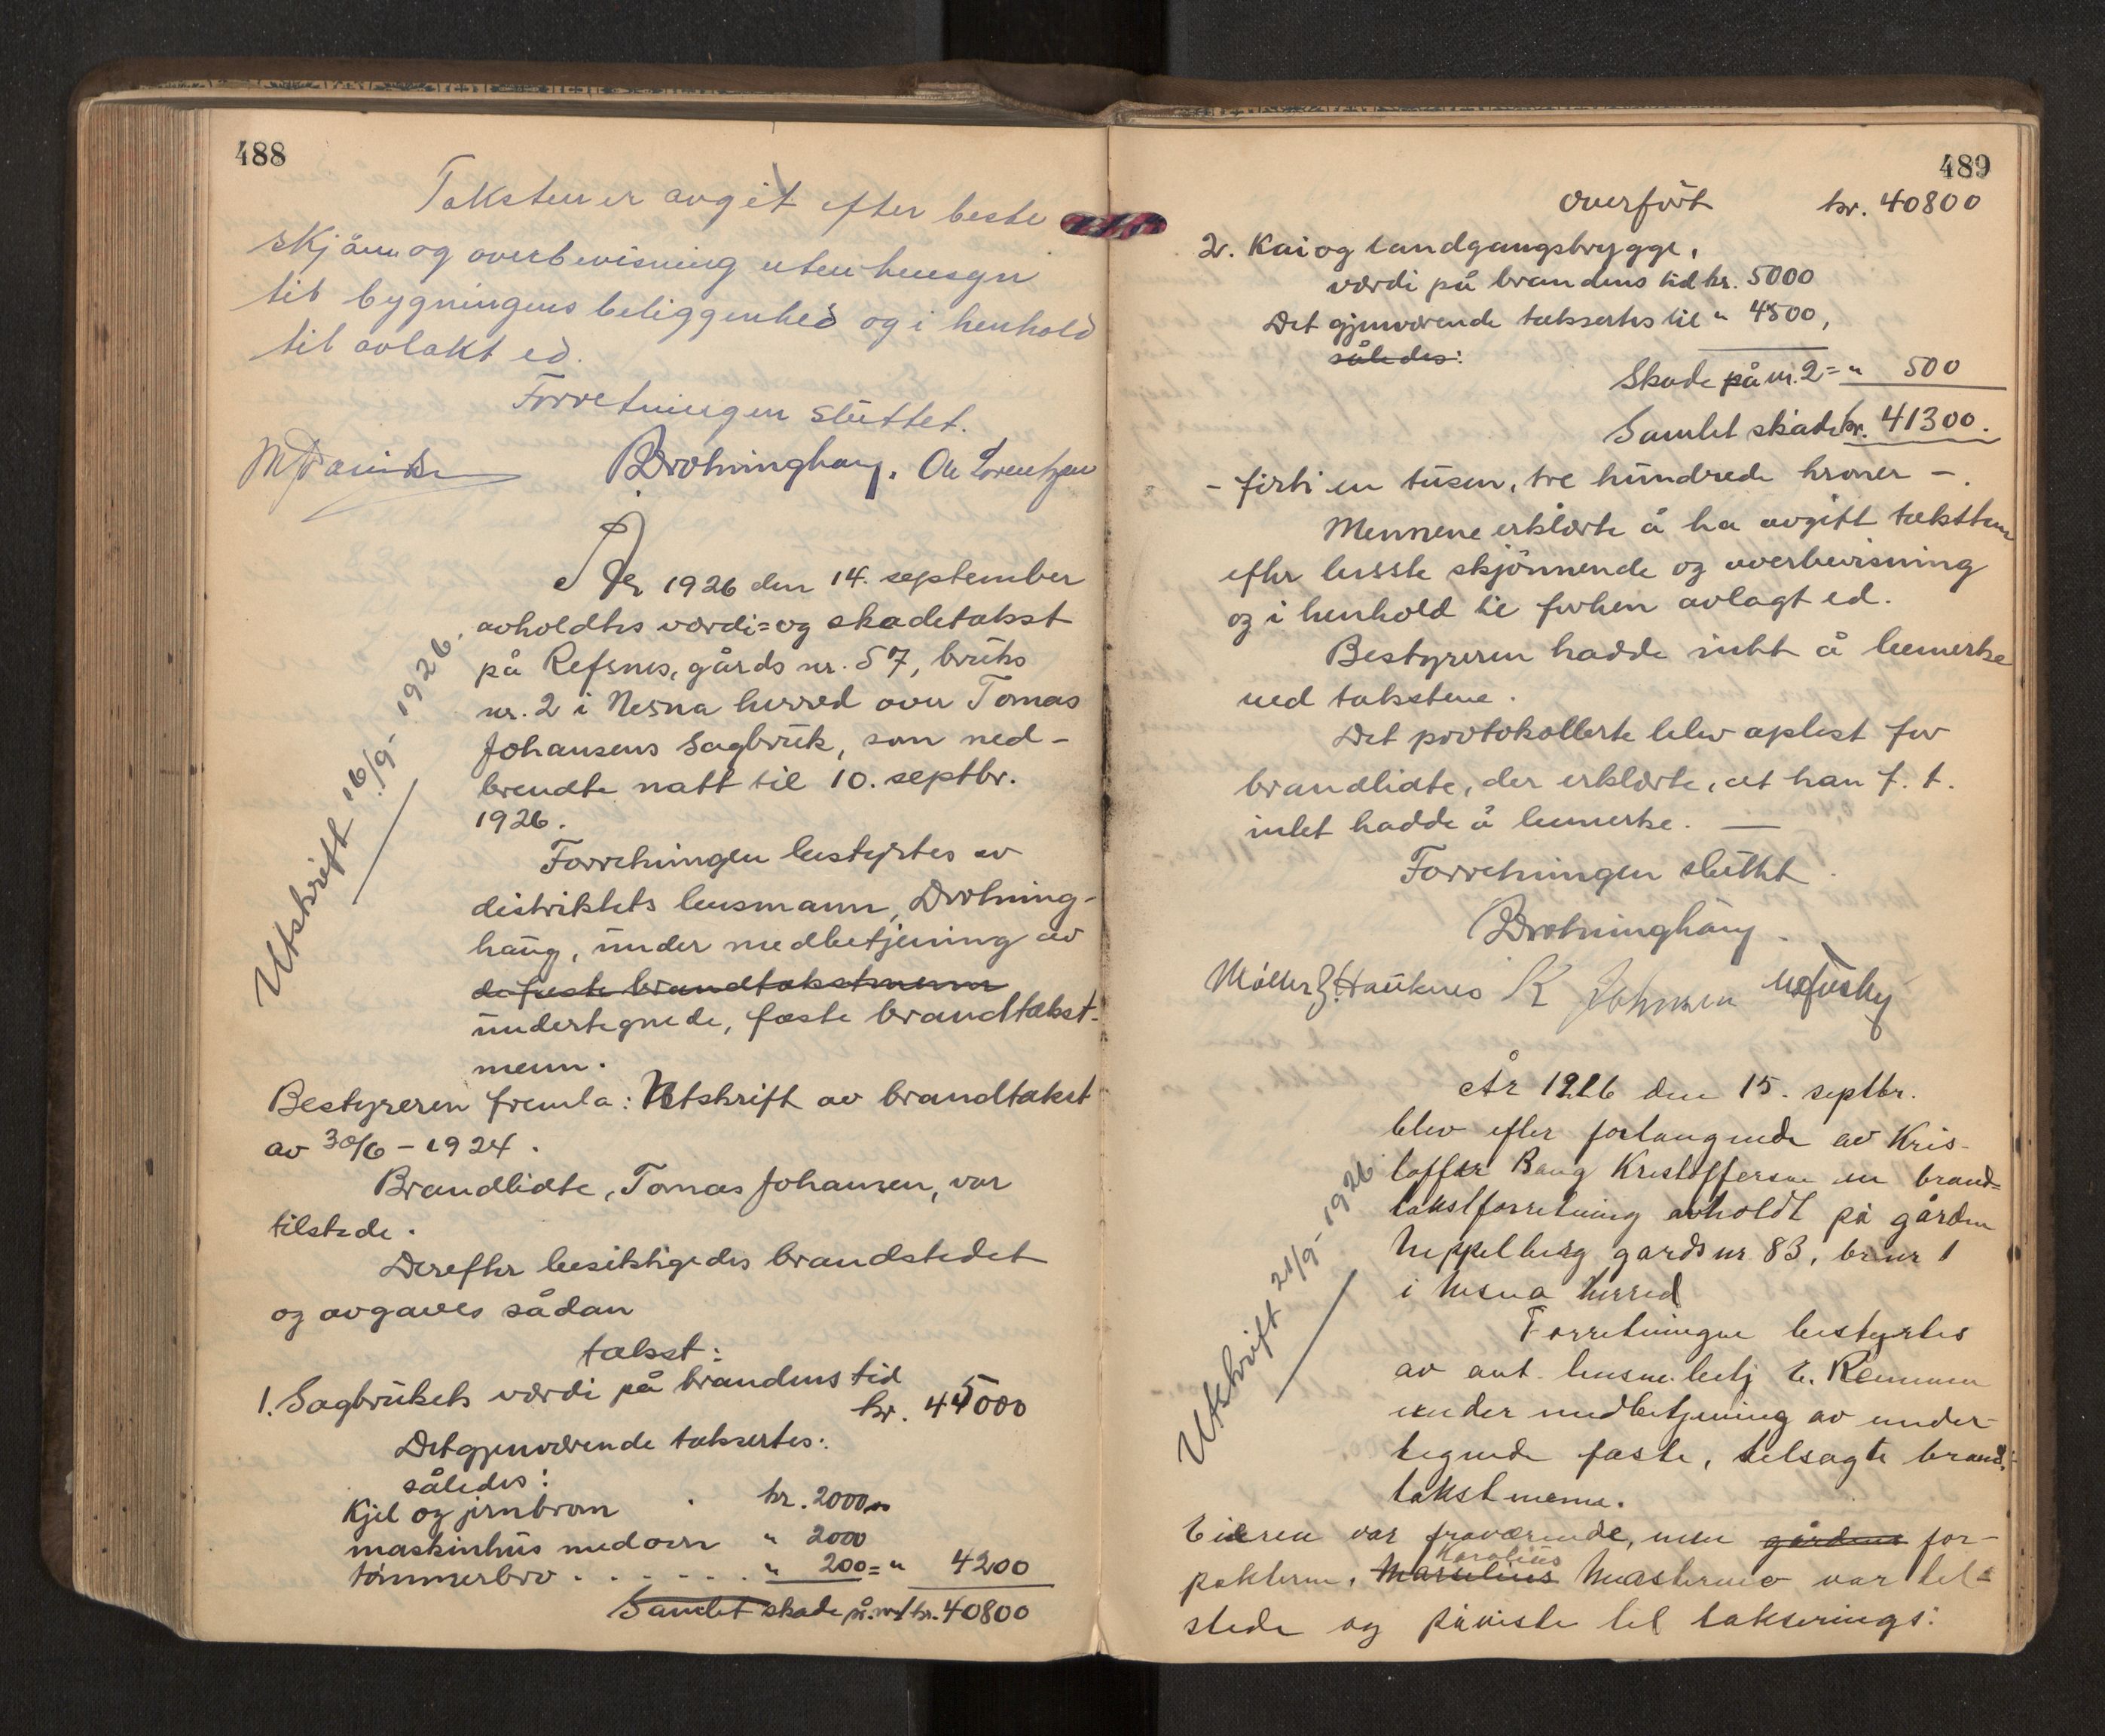 488
Taksten er avgit efter beste
skjøn og overbevisning uten hensyn
til bygningens beliggenhed og i henhold
til avlakt ed.
Forretningen sluttet.
Drotninghaug. Ole Lorentzen
År 1926 den 14. september
avholdtes værdi= og skadetakst
på Refsnes, gårds nr. 57, bruks
nr. 2 i Nesna herred over Tomas
Johansens Sagbruk, som ned-
brendte natt til 10. septbr.
1926.
Utskrift 16/9-1926.
Forretningen bestyrtes av
distriktets lensmann, Drotning-
haug, under medbetjening av
de faste brandtakstmenn
undertegnede, faste brandtakst-
menn.
Bestyreren fremla: Utskrift av brandtakst
av 30/6-1924.
Brandlidte, Tomas Johansen, var
tilstede.
Derefter besiktigedes brandstedet
og avgaves sådan
takst:
1. Sagbrukets værdi på brandens tid
kr. 45000
Det gjenværende taksertes:
således:
Kjel og jernbrom . kr. 2000
maskinhus med ovn " 2000
tømmerbro . . . . . . " 200 = " 4200
Samlet skade på nr 1 kr. 40800
489
Overført kr. 40800
2. Kai og landgangsbrygge,
værdi på brandens tid kr. 5000
Det gjenværende taksertes til " 4500,
således:
Skade på nr. 2 = " 500
Samlet skade kr. 41300.
- firti en tusen, tre hundrede kroner -.
Mennene erklærte å ha avgitt taksten
efter beste skjønnende og overbevisning
og i henhold til forhen avlagt ed.
Bestyreren hadde intet å bemerke
ved takstene.
Det protokollerte blev oplest for
brandlidte, der erklærte, at han f. t.
intet hadde å bemerke. —
Forretningen sluttet.
Drotninghaug.
Møller Hauknes K Johnsen
År 1926 den 15. septbr.
blev efter forlangende av Kris-
toffer Bang Kristoffersen en brand=
takstforretning avholdt på gården
Neppelberg gards nr 83, br. nr 1
i Nesna herred
Utskrift 21/9-1926
Forretningen bestyrtes
av aut. lensm. betj E. Remmen
under medbetjening av under-
tegnede faste, tilsagte brand-
takstmenn.
Eieren var fraværende, men gårdens for-
pakteren, Marselius Karolius Mastermo var til=
stede og påviste til takserings: